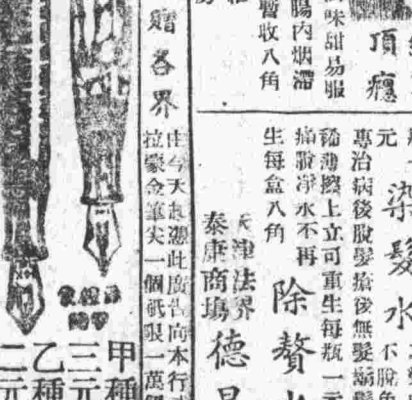 頂癮
味甜易服
腸內烟滯
暫收八角
元
染髮水
不脫
專治病後脫髮瘡後無髮
稀薄擦上立可重生每瓶一元
除贅
痛脫淨水不再
生每盒八角
天津法界
泰康商場
德
贈各界
由今天起憑此廣告向本行
拉蒙金筆尖一個祇限一萬
甲種
三元
乙種
二元